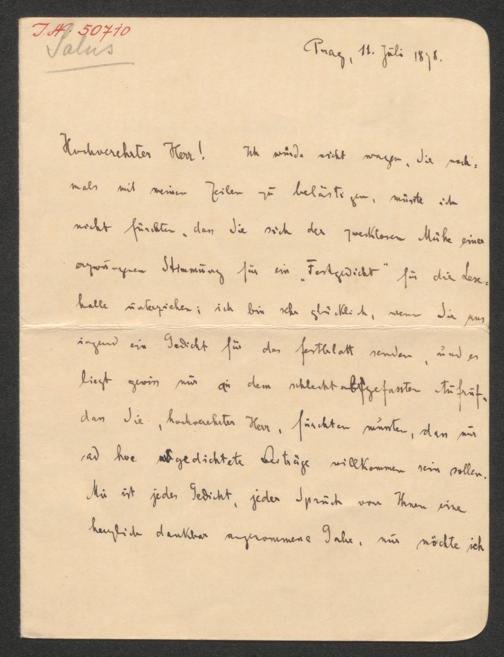 I.N. 50710
Salus
Prag, 11. Juli 1898.
Hochverehrter Herr! Ich würde nicht wagen, Sie noch-
mals mit meinen Zeilen zu belästigen, müsste ich
nicht fürchten, dass Sie sich der zwecklosen Mühe einer
erzwungenen Stimmung für ein „Festgedicht“ für die Lese-
halle unterziehen; ich bin sehr glücklich, wenn Sie uns
irgend ein Gedicht für das Festblatt senden, und es
liegt gewiss nur an dem schlecht abgefassten Aufruf,
dass Sie, hochverehrter Herr, fürchten mussten, dass nur
ad hoc gedichtete Beiträge willkommen sein sollen.
Mir ist jedes Gedicht, jeder Spruch von Ihnen eine
herzlich dankbar angenommene Gabe, nur möchte ich